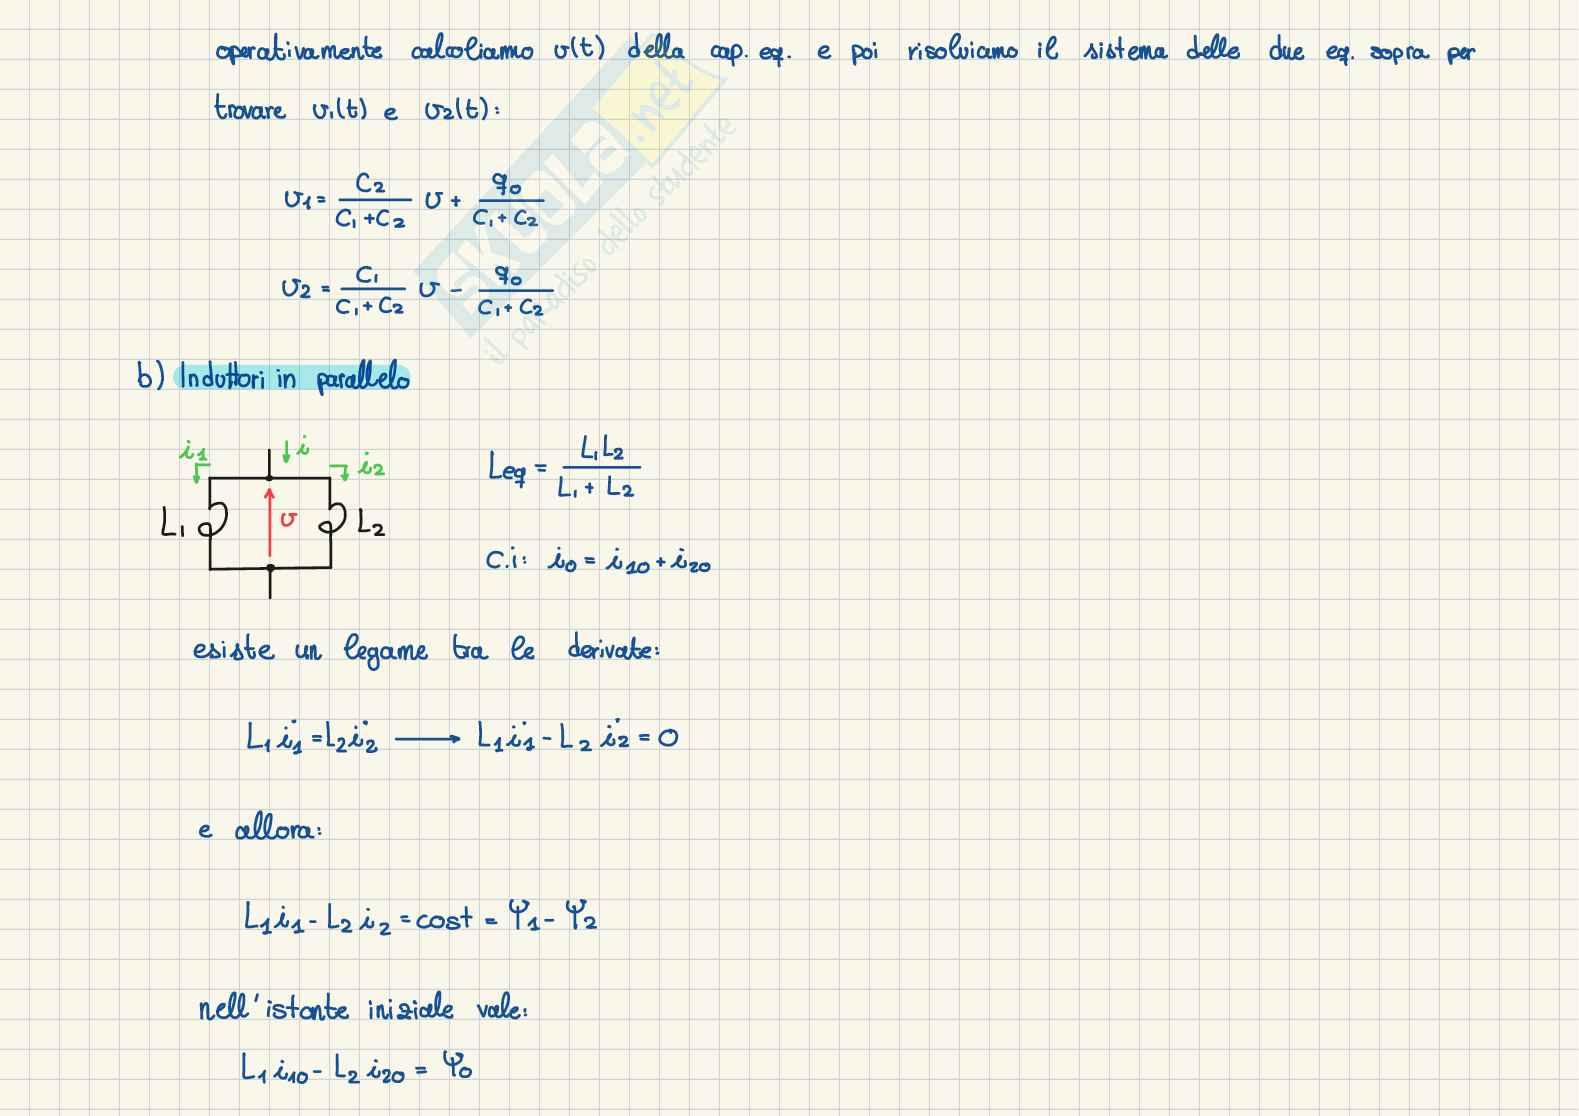 operativamente calcoliamo v(t) della cap. eq. e poi risolviamo il sistema delle due eq. sopra per
trovare v1(t) e v2(t):
v1 = C2/(C1+C2) v + q0/(C1+C2)
v2 = C1/(C1+C2) v - q0/(C1+C2)
b) Induttori in parallelo
i1 i i2
L1 v L2
Leq = L1L2/(L1+L2)
C.i: i0 = i10 + i20
esiste un legame tra le derivate:
L1 i̇1 = L2 i̇2 ⟶ L1 i̇1 - L2 i̇2 = 0
e allora:
L1 i1 - L2 i2 = cost = Ψ1 - Ψ2
nell'istante iniziale vale:
L1 i10 - L2 i20 = Ψ0
skuola.net
il paradiso dello studente